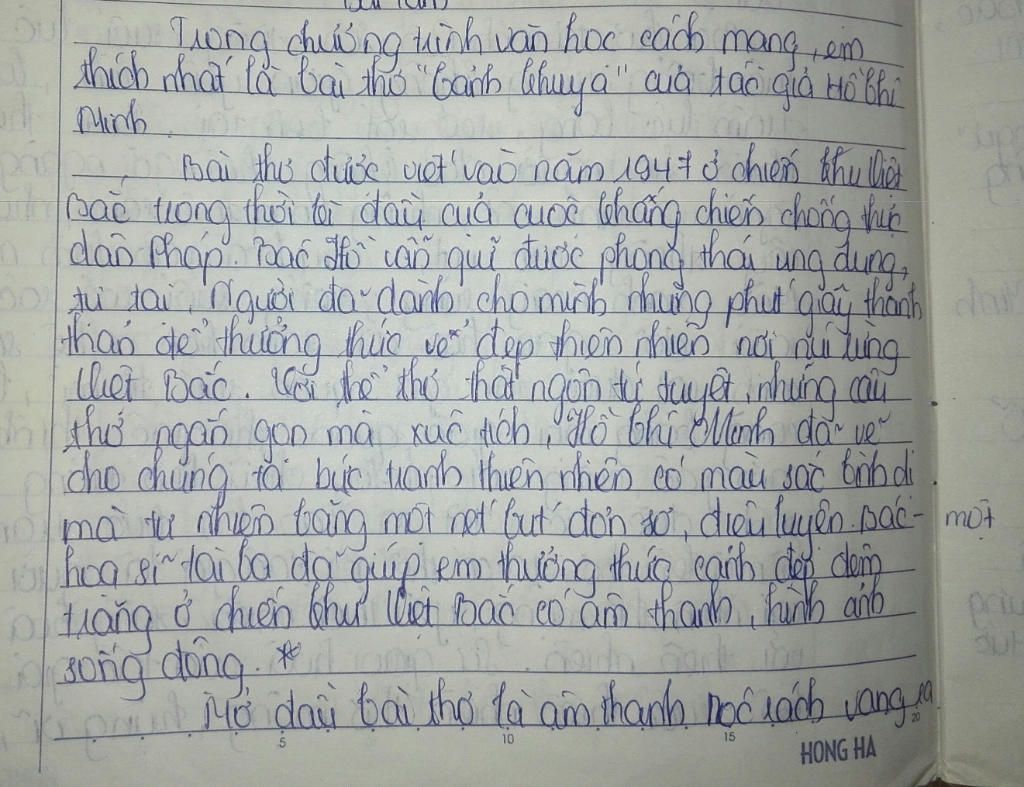 Bài làm
Trong chương trình văn học cách mạng, em
thích nhất là bài thơ "Cảnh khuya" của tác giả Hồ Chí
Minh.
Bài thơ được viết vào năm 1947 ở chiến khu Việt
Bắc trong thời kì đầu của cuộc kháng chiến chống thực
dân Pháp. Bác Hồ vẫn giữ được phong thái ung dung,
tự tại, Người đã dành cho mình những phút giây thanh
thản để thưởng thức vẻ đẹp thiên nhiên nơi núi rừng
Việt Bắc. Với thể thơ thất ngôn tứ tuyệt, những câu
thơ ngắn gọn mà xúc tích, Hồ Chí Minh đã vẽ
cho chúng ta bức tranh thiên nhiên có màu sắc bình dị
mà tự nhiên bằng một nét bút đơn sơ, điêu luyện. Bác- một
họa sĩ tài ba đã giúp em thưởng thức cảnh đẹp đêm
trăng ở chiến khu Việt Bắc có âm thanh, hình ảnh
sống động. *
Mở đầu bài thơ là âm thanh róc rách vang xa
5 10 15 20
HONG HA